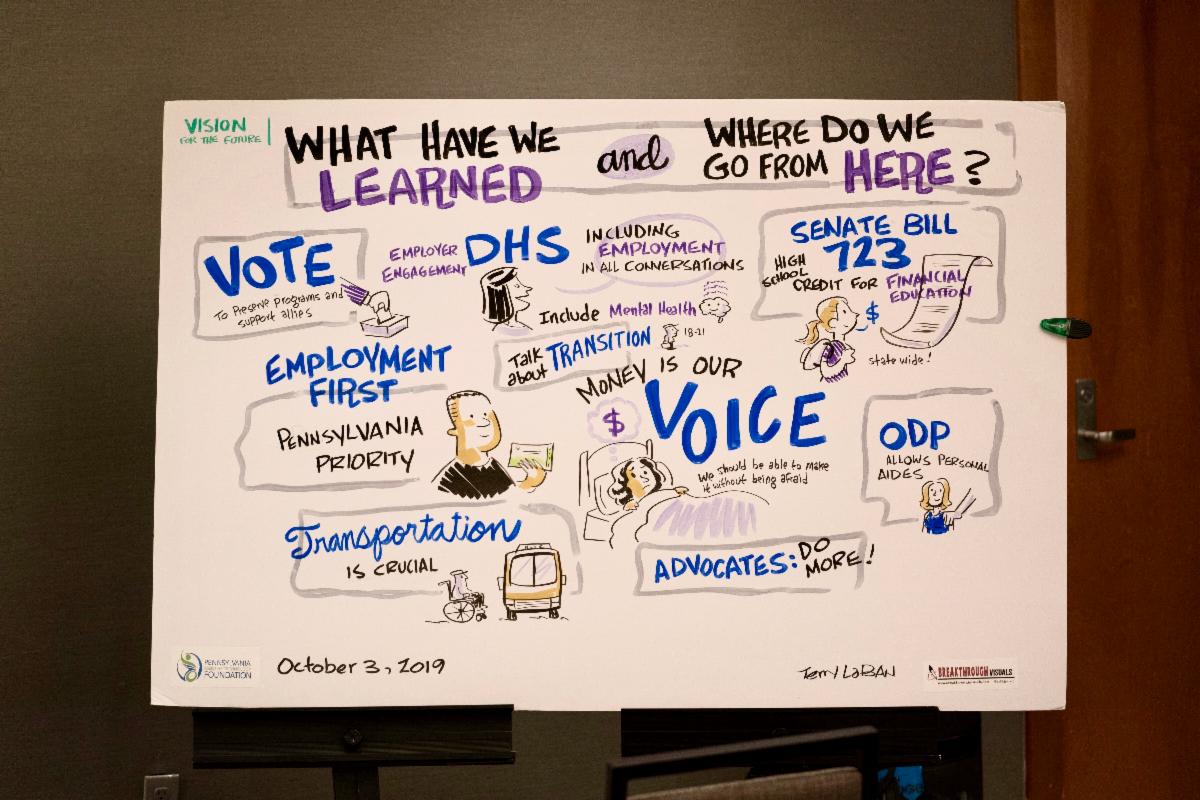 VISION
FOR THE FUTURE
WHAT HAVE WE
LEARNED
and
WHERE DO WE
GO FROM HERE?
VOTE
To Preserve programs and
support allies
EMPLOYER
ENGAGEMENT
DHS
INCLUDING
EMPLOYMENT
IN ALL CONVERSATIONS
Include Mental Health
Talk
about TRANSITION
18-21
SENATE BILL
723
HIGH
SCHOOL
CREDIT FOR FINANCIAL
EDUCATION
$
state wide!
EMPLOYMENT
FIRST
PENNSYLVANIA
PRIORITY
MONEY IS OUR
VOICE
$
We should be able to make
it without being afraid
ODP
ALLOWS PERSONAL
AIDES
Transportation
IS CRUCIAL
ADVOCATES: DO
MORE!
PENNSYLVANIA
FOUNDATION
October 3, 2019
Terry LaBAN
BREAKTHROUGH VISUALS